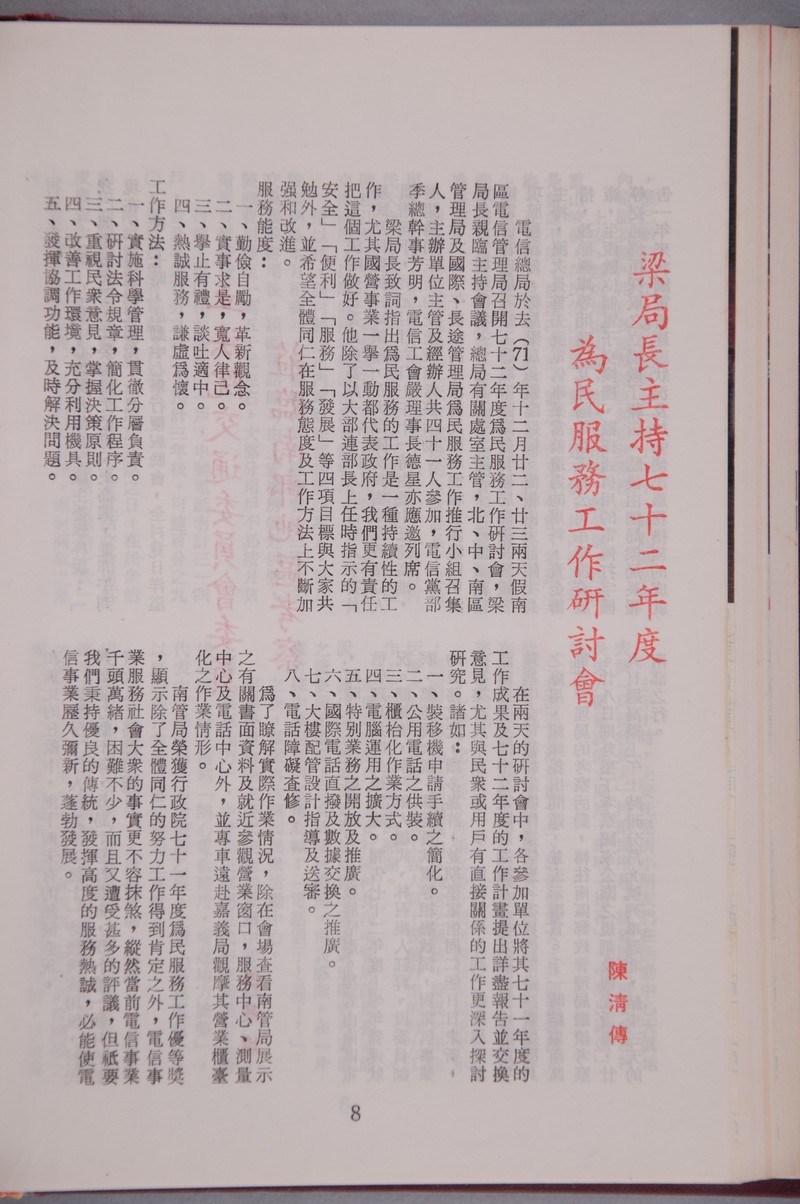 梁局長主持七十二年度
為民服務工作研討會
陳清傳
電信總局於去（71）年十二月廿二、廿三兩天假南
區電信管理局召開七十二年度爲民服務工作研討會，梁
局長親臨主持會議，總局有關處室主管，北、中、南區
管理局及國際、長途管理局爲民服務工作推行小組召集
人，主辦單位主管及經辦人共四十一人參加，電信黨部
季總幹事芳明，電信工會嚴理事長德星亦應邀列席。
梁局長致詞指出爲民服務的工作是一種持續性的工
作，尤其國營事業一擧一動都代表政府，我們更有責任
把這個工作做好。他除了以大部連部長上任時指示的「
安全」「便利」「服務」「發展」等四項目標與大家共
勉外，並希望全體同仁在服務態度及工作方法上不斷加
强和改進。
服務能度：
一、勤儉自勵，革新觀念。
二、實事求是，寬人律己。
三、擧止有禮，談吐適中。
四、熱誠服務，謙虛爲懷。
工作方法：
一、實施科學管理，貫徹分層負責。
二、研討法令規章，簡化工作程序。
三、重視民衆意見，掌握決策原則。
四、改善工作環境，充分利用機具。
五、發揮協調功能，及時解決問題。
在兩天的研討會中，各參加單位將其七十一年度的
工作成果及七十二年度的工作計畫提出詳盡報告並交換
意見，尤其與民衆或用戶有直接關係的工作更深入探討
研究。諸如：
一、裝移機申請手續之簡化。
二、公用電話之供裝。
三、櫃枱化作業方式。
四、電腦運用之擴大。
五、特別業務之開放及推廣。
六、國際電話直撥及數據交換之推廣。
七、大樓配管設計指導及送審。
八、電話障礙查修。
爲了瞭解實際作業情況，除在會場查看南管局展示
之有關書面資料及就近參觀營業窗口，服務中心、測量
中心及電話中心外，並專車遠赴嘉義局觀摩其營業櫃臺
化之作業情形。
南管局榮獲行政院七十一年度爲民服務工作優等獎
，顯示除了全體同仁的努力工作得到肯定之外，電信事
業服務社會大衆的事實更不容抹煞，縱然當前電信事業
千頭萬緒，困難不少，而且又遭受甚多的評議，但祇要
我們秉持優良的傳統，發揮高度的服務熱誠，必能使電
信事業歷久彌新，蓬勃發展。
8